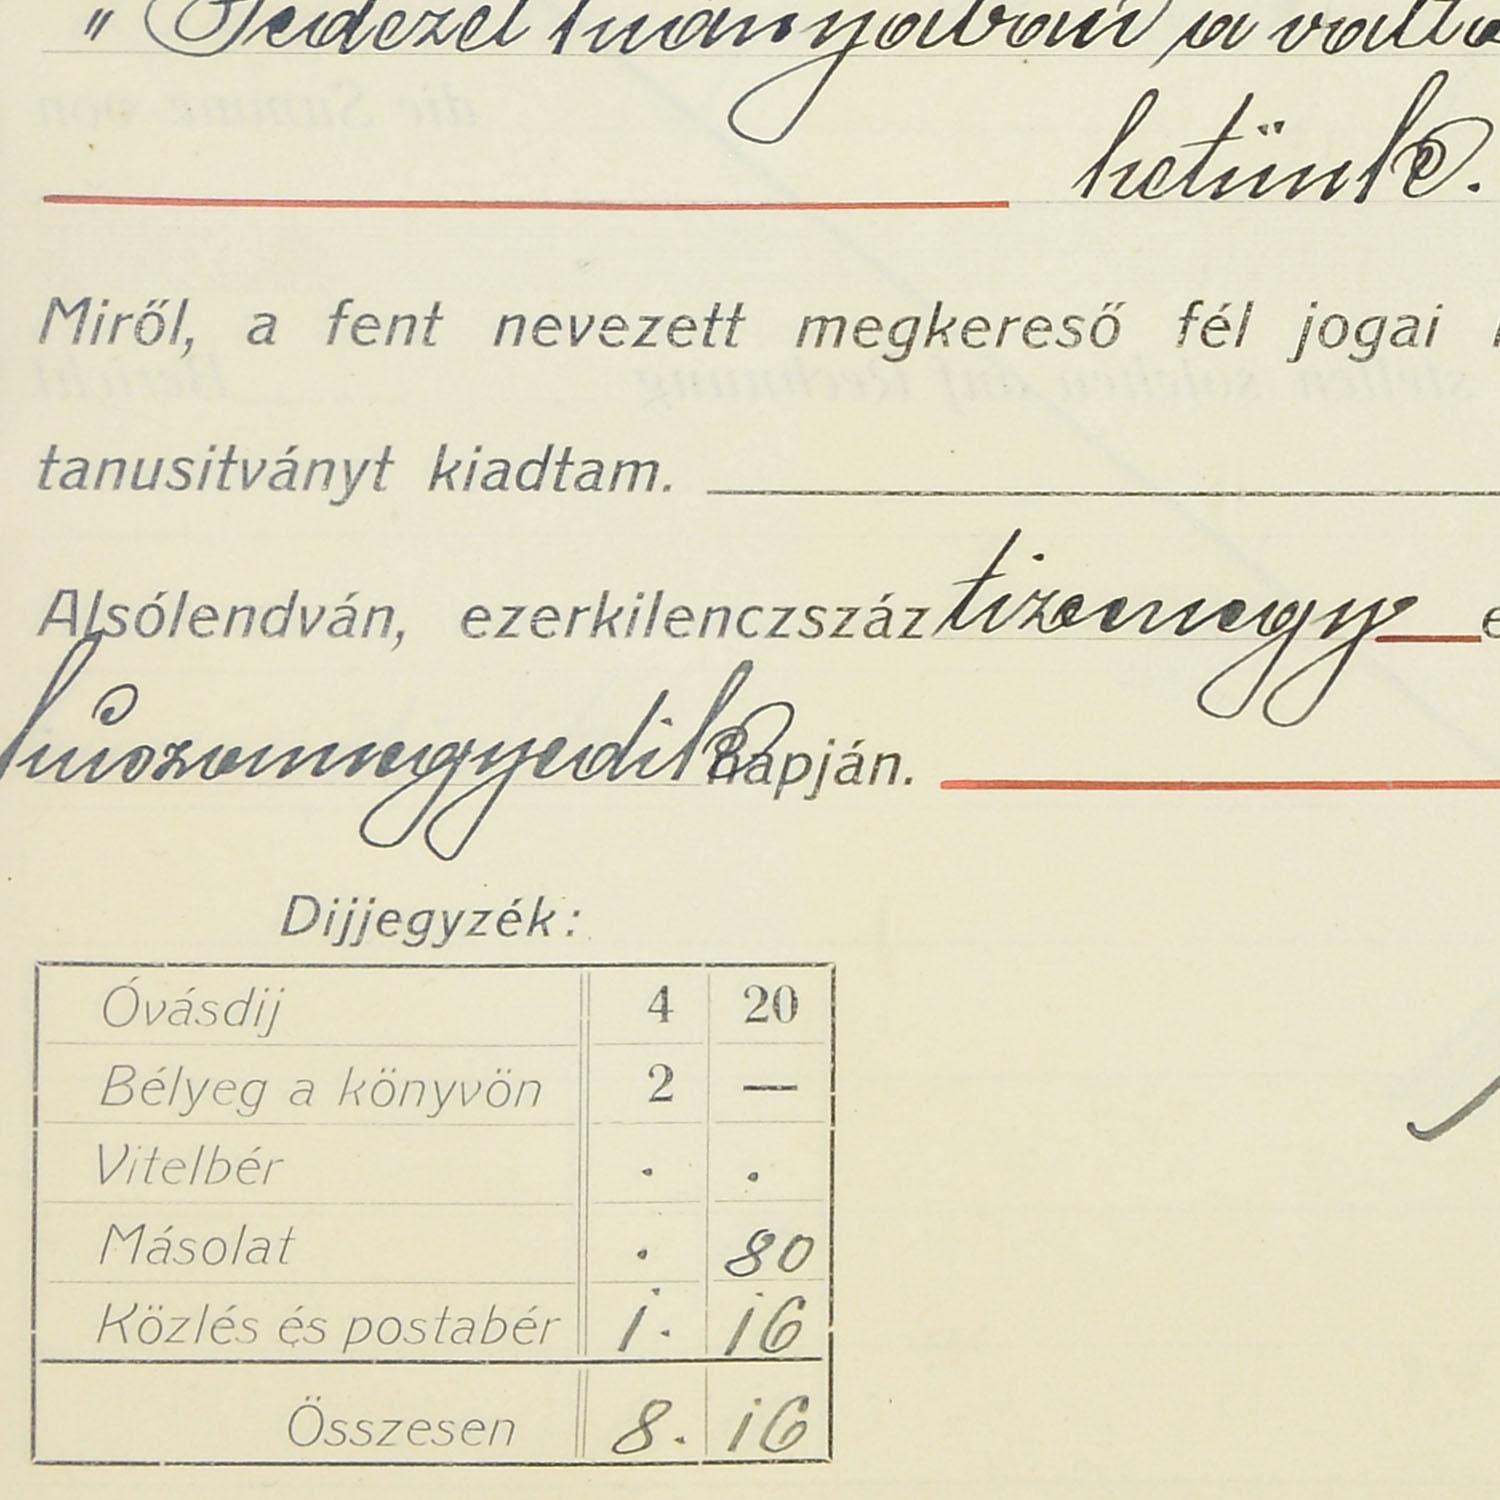 " Fedezet hiányában a váltó
hetünk.
Miről, a fent nevezett megkereső fél jogai
tanusitványt kiadtam.
Alsólendván, ezerkilenczszáz tizenegy e
huszonegyedik napján.
Dijjegyzék:
Óvásdij 4 20
Bélyeg a könyvön 2 —
Vitelbér . .
Másolat . 80
Közlés és postabér 1. 16
Összesen 8. 16